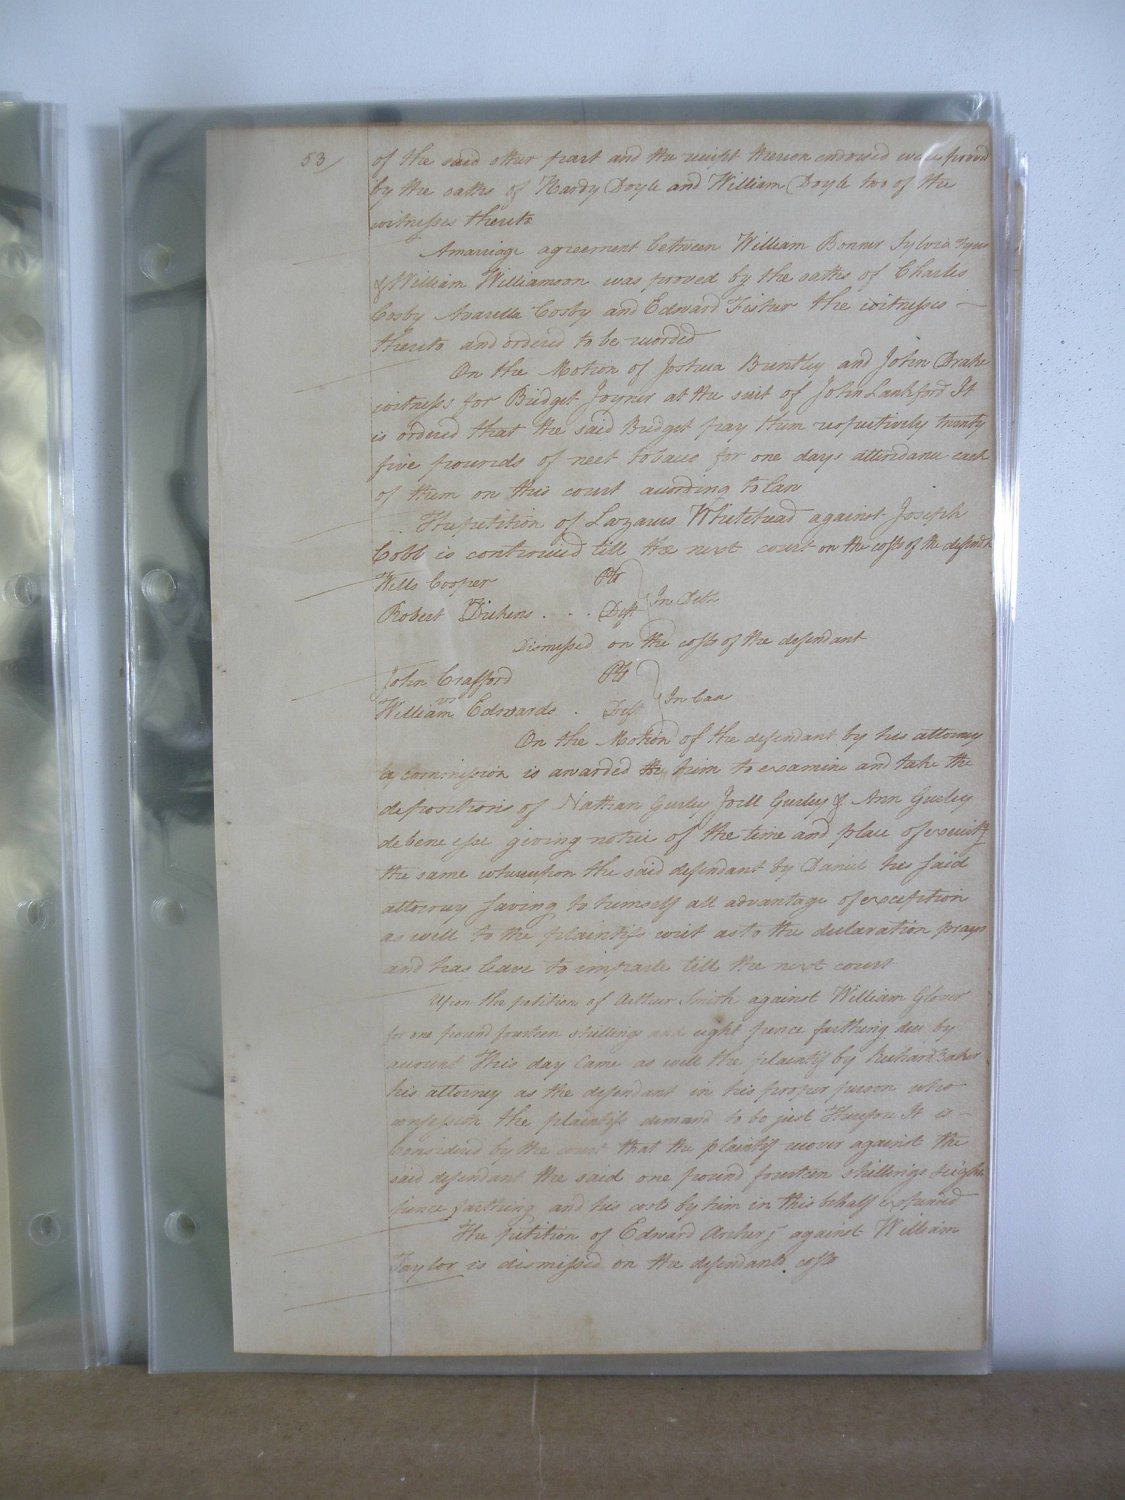 53/
of the said other part and the receipt thereon endorsed were proved
by the oaths of Hardy Doyle and William Doyle two of the
witnesses thereto
A marriage agreement between William Bonner Sylvia
& William Williamson was proved by the oaths of Charles
Cosby Avarella Cosby and Edward Fisher the witnesses –
thereto and ordered to be recorded
On the Motion of Joshua Brintley and John Drake
witness for Bridget Joyner at the suit of John Lankford It
is ordered that the said Bridget pay them respectively twenty
five pounds of neet tobacco for one days attendance each
of them on this court according to law
The petition of Lazarus Whitehead against Joseph
Cobb is continued till the next court on the costs of the defendt
Wills Cooper Plt
vs
Robert Dickens . . . Deft
In Debt
Dismissed on the costs of the defendant
John Crafford Plt
vs
William Edwards . Deft
In Case
On the Motion of the defendant by his attorney
a commission is awarded him to examine and take the
depositions of Nathan Gurley Joell Gurley & Ann Gurley
debene esse giving notice of the time and place of
the same whereupon the said defendant by Daniel his said
attorney saving to himself all advantage of exception
as well to the plaintifs writ as to the declaration prays
and has leave to imparle till the next court
Upon the petition of Arthur Smith against William Glover
for one pound fourteen shillings and eight pence farthing due by
account This day Came as well the plaintif by Richard Baker
his attorney as the defendant in his proper person who
confession the plaintifs demand to be just Therefore It is –
Considered by the court that the plaintif recover against the
said defendant the said one pound fourteen shillings & eight
pence farthing and his costs by him in this behalf expended
The petition of Edward Archer against William
Taylor is dismissed on the defendants costs